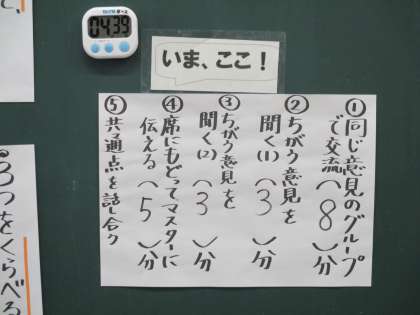 04:39
いま、ここ！
①同じ意見のグループ
で交流(8)分
②ちがう意見を
聞く(1)(3)分
③ちがう意見を
聞く(2)(3)分
④席にもどってマスターに
伝える(5)分
⑤共通点を話し合う
3つをくらべる